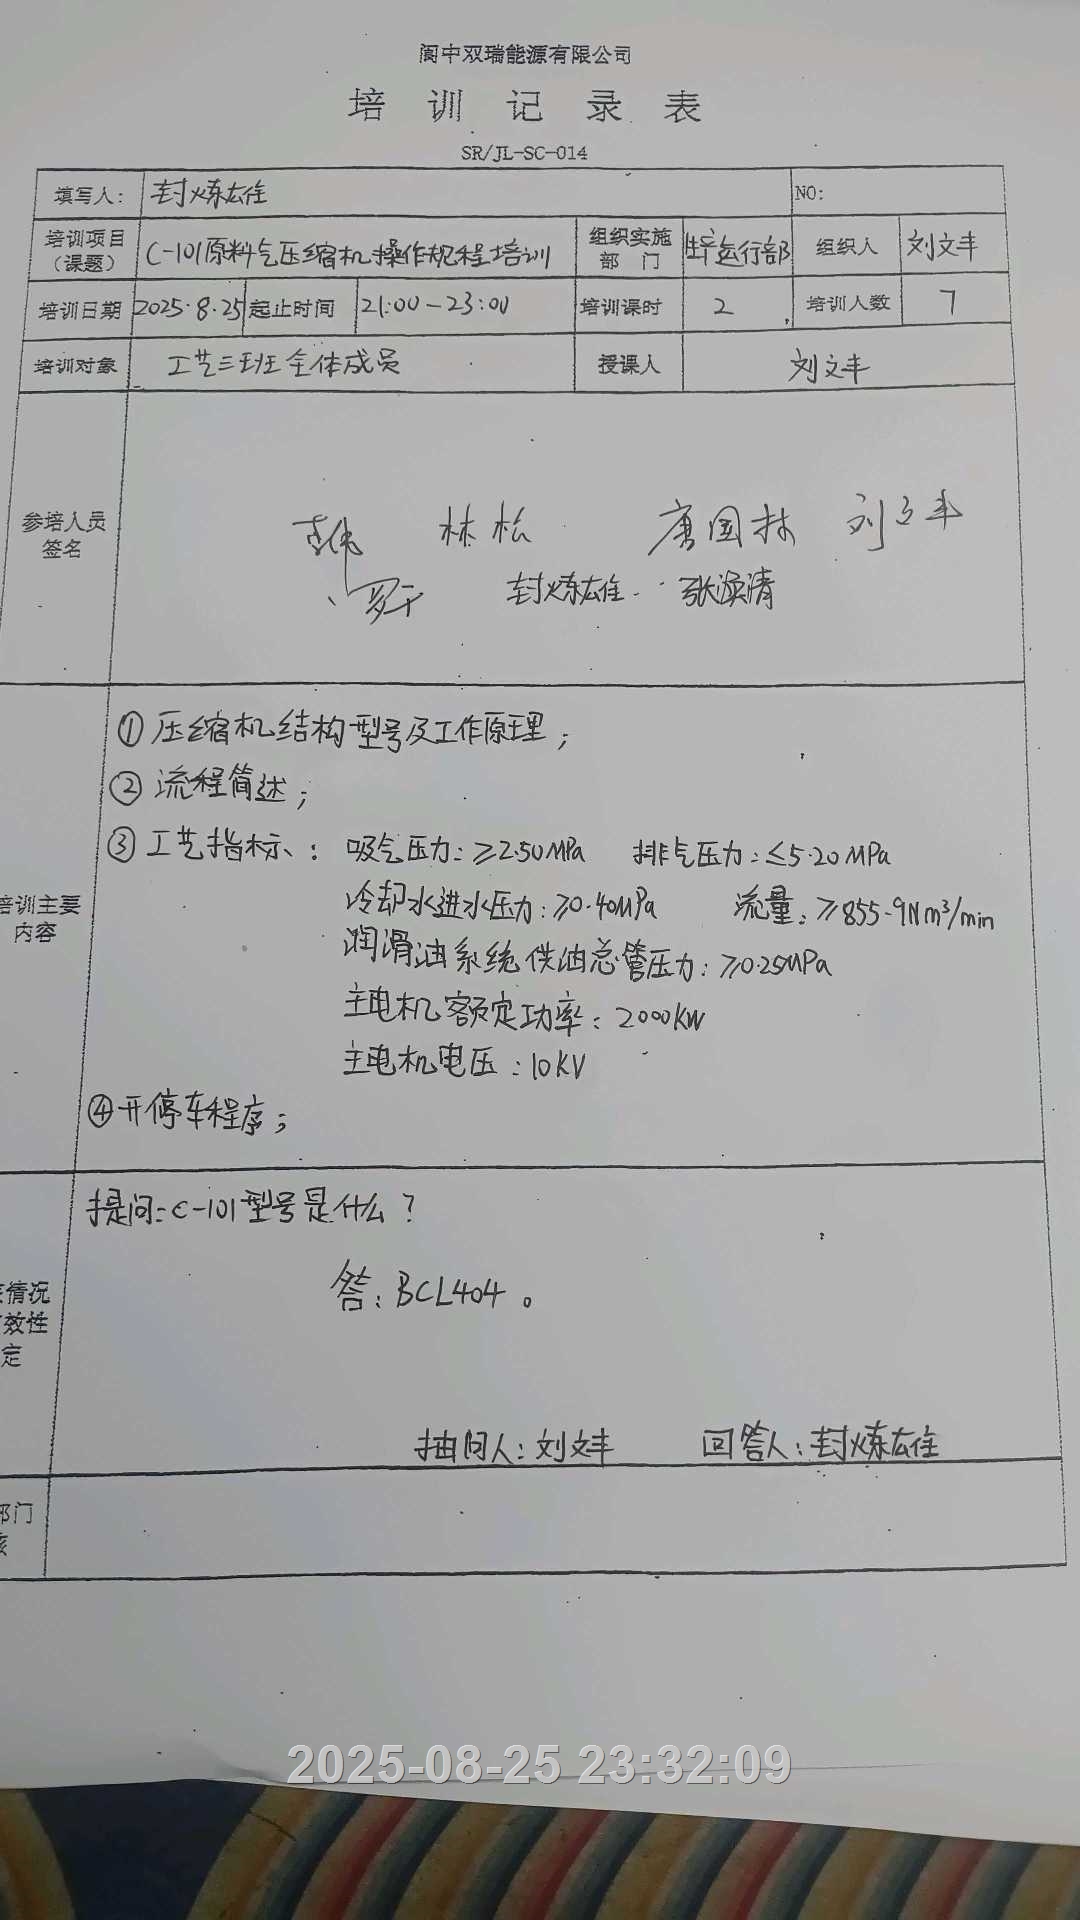 阆中双瑞能源有限公司
培训记录表
SR/JL-SC-014
填写人: 封炼雄 NO:
培训项目(课题) C-101原料气压缩机操作规程培训 组织实施部门 生产运行部 组织人 刘文丰
培训日期 2025.8.25 起止时间 21:00-23:00 培训课时 2 培训人数 7
培训对象 工艺三班全体成员 授课人 刘文丰
参培人员签名
林松 唐国林 刘文丰
封炼雄 张涣清
培训主要内容
①压缩机结构型号及工作原理;
②流程简述;
③工艺指标: 吸气压力:≥2.50MPa 排气压力:≤5.20MPa
冷却水进水压力:≥0.40MPa 流量:≥855.9Nm³/min
润滑油系统供油总管压力:≥0.25MPa
主电机额定功率:2000KW
主电机电压:10KV
④开停车程序;
情况
效性
定
提问:C-101型号是什么?
答:BCL404。
抽问人:刘文丰 回答人:封炼雄
部门
2025-08-25 23:32:09